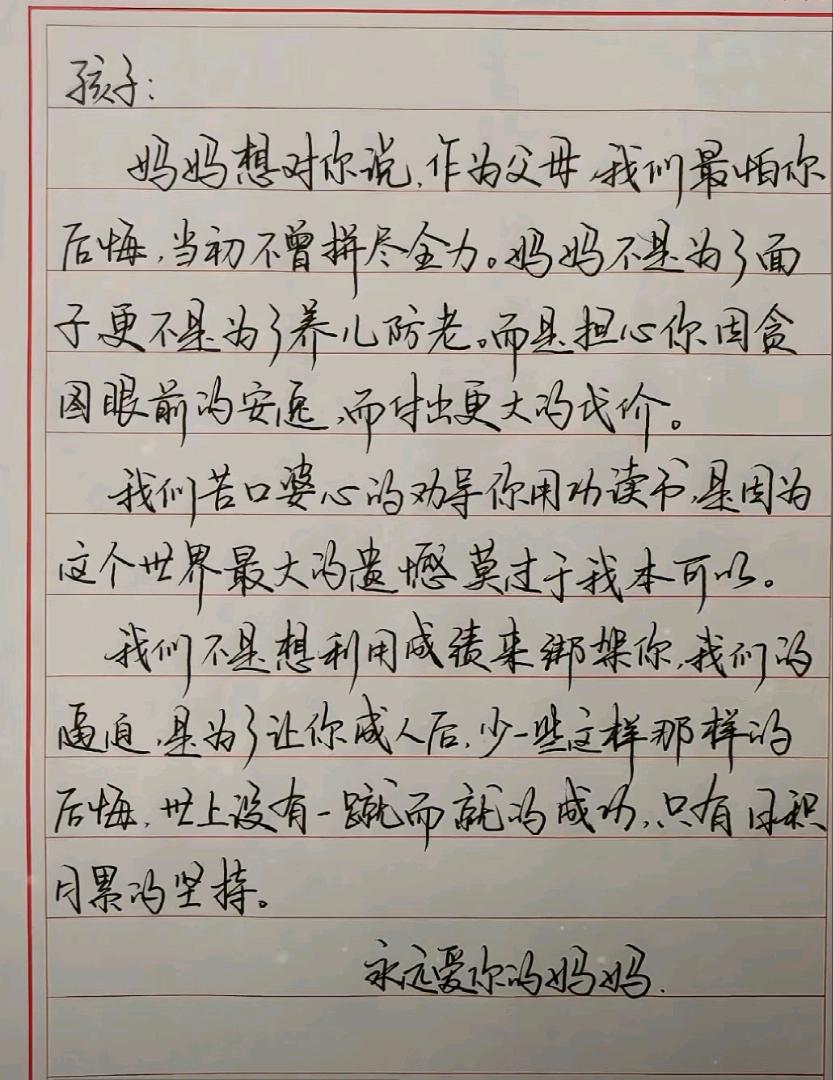 孩子:
妈妈想对你说,作为父母,我们最怕你
后悔,当初不曾拼尽全力。妈妈不是为了面
子更不是为了养儿防老。而是担心你因贪
图眼前的安逸,而付出更大的代价。
我们苦口婆心的劝导你用功读书,是因为
这个世界最大的遗憾莫过于我本可以。
我们不是想利用成绩来绑架你,我们的
逼迫,是为了让你成人后,少一些这样那样的
后悔,世上没有一蹴而就的成功,只有日积
月累的坚持。
永远爱你的妈妈.